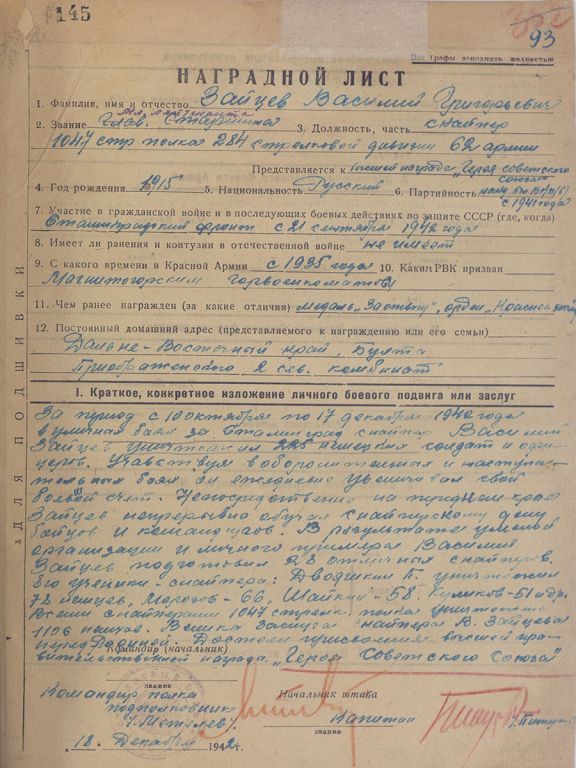 145
93
Все графы заполнять полностью
НАГРАДНОЙ ЛИСТ
1. Фамилия, имя и отчество Зайцев Василий Григорьевич
Мл. лейтенанта
2. Звание Глав. Старшина 3. Должность, часть снайпер
1047 стр полка 284 стрелковой дивизии 62 армии
Представляется к высшей награде „Героя Советского
Союза“
4. Год рождения 1915 5. Национальность Русский 6. Партийность
с 1941 года
7. Участие в гражданской войне и в последующих боевых действиях по защите СССР (где, когда)
Сталинградский фронт с 21 сентября 1942 года
8. Имеет ли ранения и контузии в отечественной войне не имеет
9. С какого времени в Красной Армии с 1935 года 10. Каким РВК призван
Магнитогорским горвоенкоматом
11. Чем ранее награжден (за какие отличия) медаль „За отвагу“, орден „Красное знамя“
12. Постоянный домашний адрес (представляемого к награждению или его семьи)
Дальне-Восточный край, Бухта
Приображенского, 2 сев. комбинат
I. Краткое, конкретное изложение личного боевого подвига или заслуг
За период с 10 октября по 17 декабря 1942 года
в уличных боях за Сталинград снайпер Василий
Зайцев уничтожил 225 немецких солдат и офи-
церов. Участвуя в оборонительных и наступа-
тельных боях он ежедневно увеличивал свой
боевой счет. Непосредственно на переднем крае
Зайцев непрерывно обучал снайперскому делу
бойцов и командиров. В результате умелой
организации и личного примера Василий
Зайцев подготовил 28 отличных снайперов.
Его ученики-снайпера: Двояшкин П. уничтожил
78 немцев, Морозов-66, Шайкин-58, Куликов-51 и др.
Всеми снайперами 1047 стрелк. полка уничтожено
1106 немцев. Велика заслуга снайпера В. Зайцева
перед Родиной. Достоин присвоения высшей пра-
Командир (начальник)
вительственной награды „Героя Советского Союза“
звание
Командир полка
подполковник
/Метелев/
Начальник штаба
Капитан
звание
18 Декабря 1942 г.
ДЛЯ ПОДШИВКИ